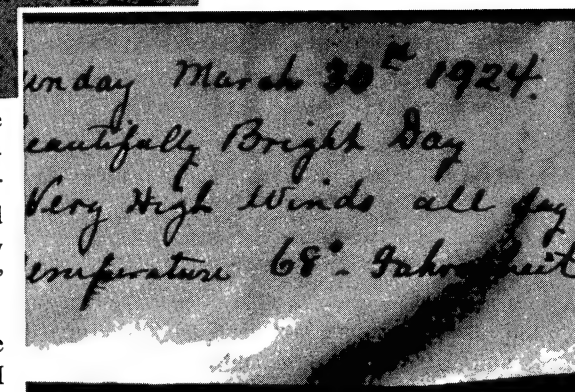 unday March 30th 1924.
eautifully Bright Day
Very High Winds all day
emperature 68°. Fahrenheit